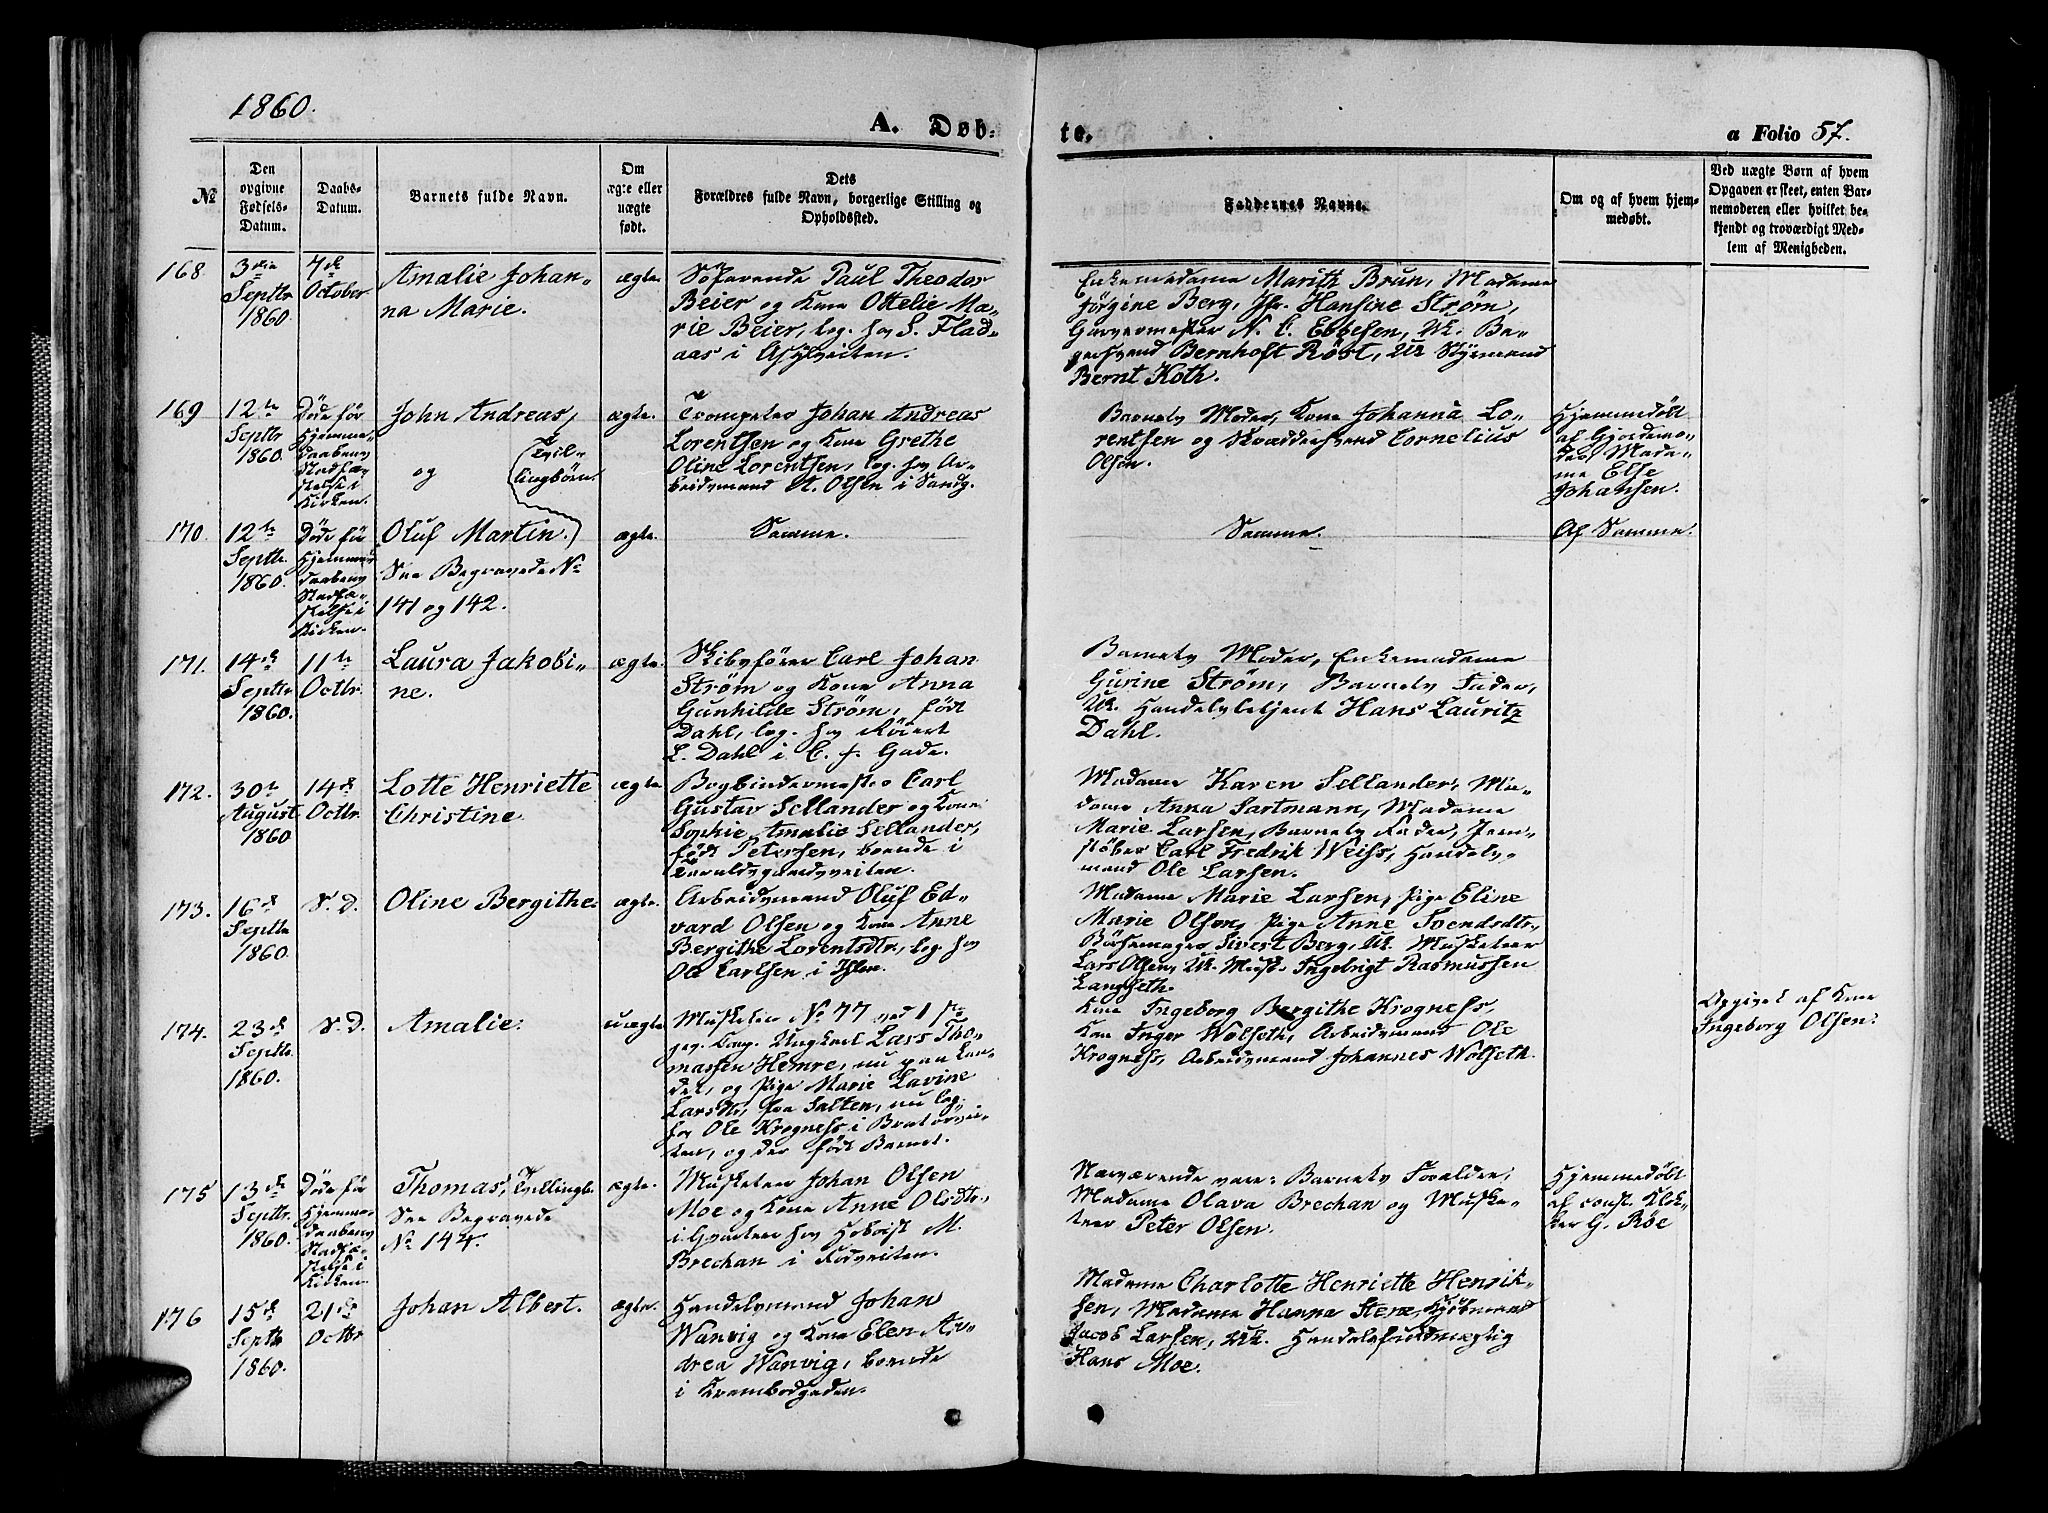 1860.
A. Døb-
te.
a Folio 57.
№
Den opgivne Fødsels-Datum.
Daabs-Datum.
Barnets fulde Navn.
Om ægte eller uægte født.
Dets Forældres fulde Navn, borgerlige Stilling og Opholdssted.
Faddernes Navne.
Om og af hvem hjemmedøbt.
Ved uægte Børn af hvem Opgaven er skeet, enten Barnemoderen eller hvilket bekjendt og troværdigt Medlem af Menigheden.
168
3die Septbr 1860.
7de October
Amalie Johan-
na Marie.
ægte.
Söfarende Paul Theodor
Beier og Kone Ottelie Ma-
rie Beier, log. hos S. Flad-
aas i Asylveiten.
Enkemadame Marith Brun, Madame
Jørgine Berg, Jfr. Hansine Strøm,
Garvermester N. C. Ebbesen, Uk. Ba-
gersvend Bernhoft Röst, Uk Styrmand
Bernt Koth.
169
12te Septbr 1860.
Döde før
Hjemme-
daabens
Stadfæ-
stelse i
Kirken.
John Andreas,
og
Tvil-
lingbörn.
ægte.
Trompeter Johan Andreas
Lorentsen og Kone Grethe
Oline Lorentsen, log. hos Ar-
beidsmand A. Olsen i Sandg.
Barnets Moder, Kone Johanna Lo-
rentsen og Skræddersvend Cornelius
Olsen.
Hjemmedøbt
af Gjordemo-
der, Mada-
me Else
Johansen.
170.
12te Septbr. 1860.
Döde før
Hjemme-
daabens
Stadfæ-
stelse i
Kirken.
Oluf Martin.
See Begravede No
141 og 142.
ægte.
Samme.
Samme.
Af Samme.
171.
14de Septbr 1860.
11te Octbr.
Laura Jakobi-
ne.
ægte.
Skibsfører Carl Johan
Strøm og Kone Anna
Gunhilde Strøm, født
Dahl, log. hos Röiert
L. Dahl i C. J. Gade.
Barnets Moder, Enkemadame
Gurine Strøm, Barnets Fader,
Uk. Handelsbetjent Hans Lauritz
Dahl.
172.
30te August 1860
14de Octbr.
Lotte Henriette
Christine
ægte.
Bogbindermester Carl
Gustav Sellander og Kone
Sophie Amalie Sellander,
født Petersen, boende i
Taraldsgaardsveiten.
Madame Karen Sellander, Ma-
dame Anna Sartmann, Madame
Marie Larsen, Barnets Fader, Jern-
støber Carl Fredrik Weiss, Handels-
mand Ole Larsen.
173.
16de Septbr 1860.
S. D.
Oline Bergithe.
ægte.
Arbeidsmand Oluf Ed-
vard Olsen og Kone Anne
Bergithe Lorentsdtr., log. hos
Ole Carlsen i Ihlen.
Madame Marie Larsen, Pige Eline
Marie Olsen, Pige Anne Svendsdtr,
Børsemager Sivert Berg, Uk. Musketeer
Lars Olsen, Uk. Musk. Ingebrigt Rasmussen
Langseth.
174.
23de Septbr. 1860.
S. D.
Amalie.
uægte
Musketeer No 77 ved 1ste
jeg. Comp. Ungkarl Lars Tho-
massen Hemre, nu paa Lan-
det, og Pige Marie Lavine
Larsdtr, fra Salten, nu log.
hos Ole Krogness i Bratørvei-
ten, og der født Barnet.
Kone Ingeborg Bergithe Krogness,
Kone Inger Wolseth, Arbeidsmand Ole
Krogness, Arbeidsmand Johannes Wolseth.
Opgivet af Kone
Ingeborg Olsen.
175
13de Septbr. 1860.
Döde før
Hjemme-
daabens
Stadfæ-
stelse i
Kirken.
Thomas, Tvillingb.
See Begravede
No 144.
ægte.
Musketeer Johan Olsen
Moe og Kone Anne Olsdtr.,
i Qvarteer hos Hoboist M.
Brechan i Fidveiten.
Nærværende vare: Barnets Forældre,
Madame Olava Brechan og Muske-
teer Peter Olsen.
Hjemmedøbt
af const. Klok-
ker G. Röe
176
15de Septbr 1860.
21de Octbr
Johan Albert.
ægte.
Handelsmand Johan
Wanvig og Kone Elen An-
drea Wanvig, boende
i Krambodgaden.
Madame Charlotte Henriette Henrik-
sen, Madame Hanna Stene, Kjøbmand
Jacob Larsen, Uk. Handelsfuldmægtig
Hans Moe.